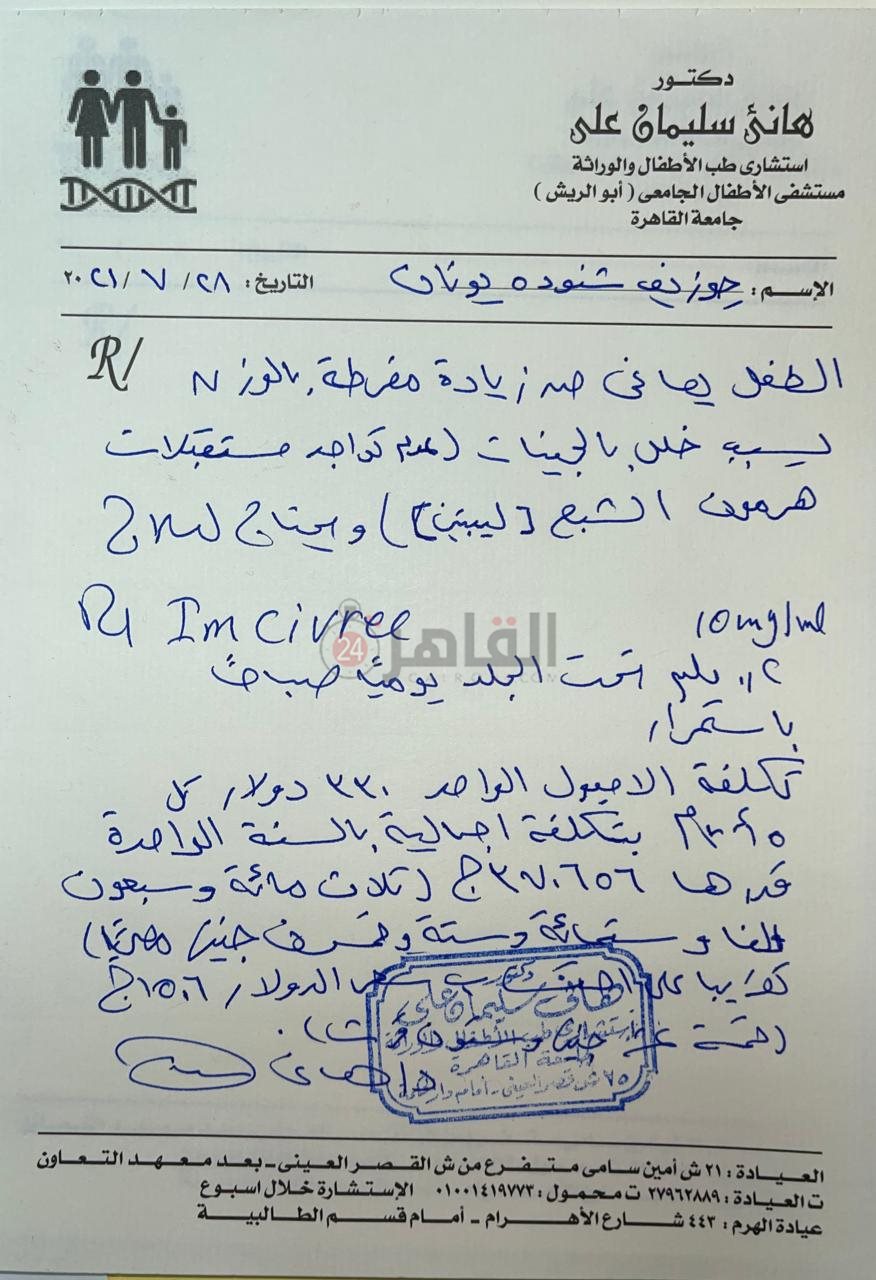 دكتور
هانئ سليمان على
استشارى طب الأطفال والوراثة
مستشفى الأطفال الجامعى ( أبو الريش )
جامعة القاهرة
الإسم : جوزيف شنوده يونان التاريخ : ٢٨ / ٧ / ٢٠٢١
R/
الطفل يعانى من زيادة مفرطة بالوزن
بسبب خلل بالجينات (عدم تواجد مستقبلات
هرمون الشبع [ليبتين]) ويحتاج لعلاج
R/ Imcivree 10mg/ml
القاهرة 24
٠,٢ ملم تحت الجلد يوميًا صباحًا
باستمرار
تكلفة الامبول الواحد ٣٣٠ دولار كل
بتكلفة اجمالية بالسنة الواحدة
قدرها ٣٧٠٦٥٦ج (ثلاث مائة وسبعون
الفا و ستمائة وستة وخمسون جنيها مصريًا)
تقريبا على سعر الدولار ١٥,٦ج
(خمسة عشر جنيها
دكتور
هانى سليمان على
استشارى طب الأطفال
جامعة القاهرة
٢٥ ش قصر العينى - أمام دار
د/ هانى
العيادة : ٢١ ش أمين سامى متفرع من ش القصر العينى - بعد معهد التعاون
ت العيادة : ٢٧٩٦٢٨٨٩ ت محمول : ٠١٠٠١٤١٩٧٧٣ الإستشارة خلال اسبوع
عيادة الهرم : ٤٤٣ شارع الأهرام - أمام قسم الطالبية